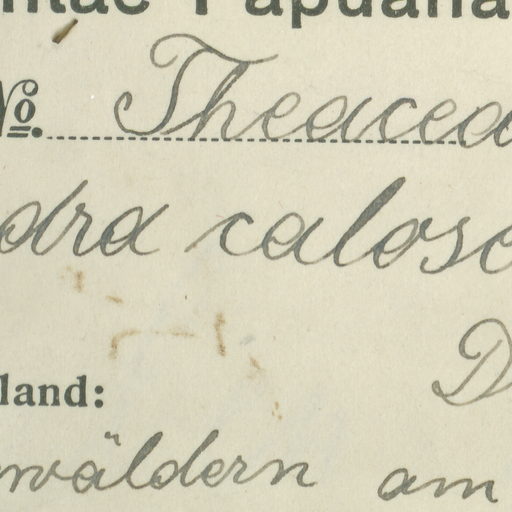 ntae Papuana
No. Theacea
dra calose
D
land:
wäldern am